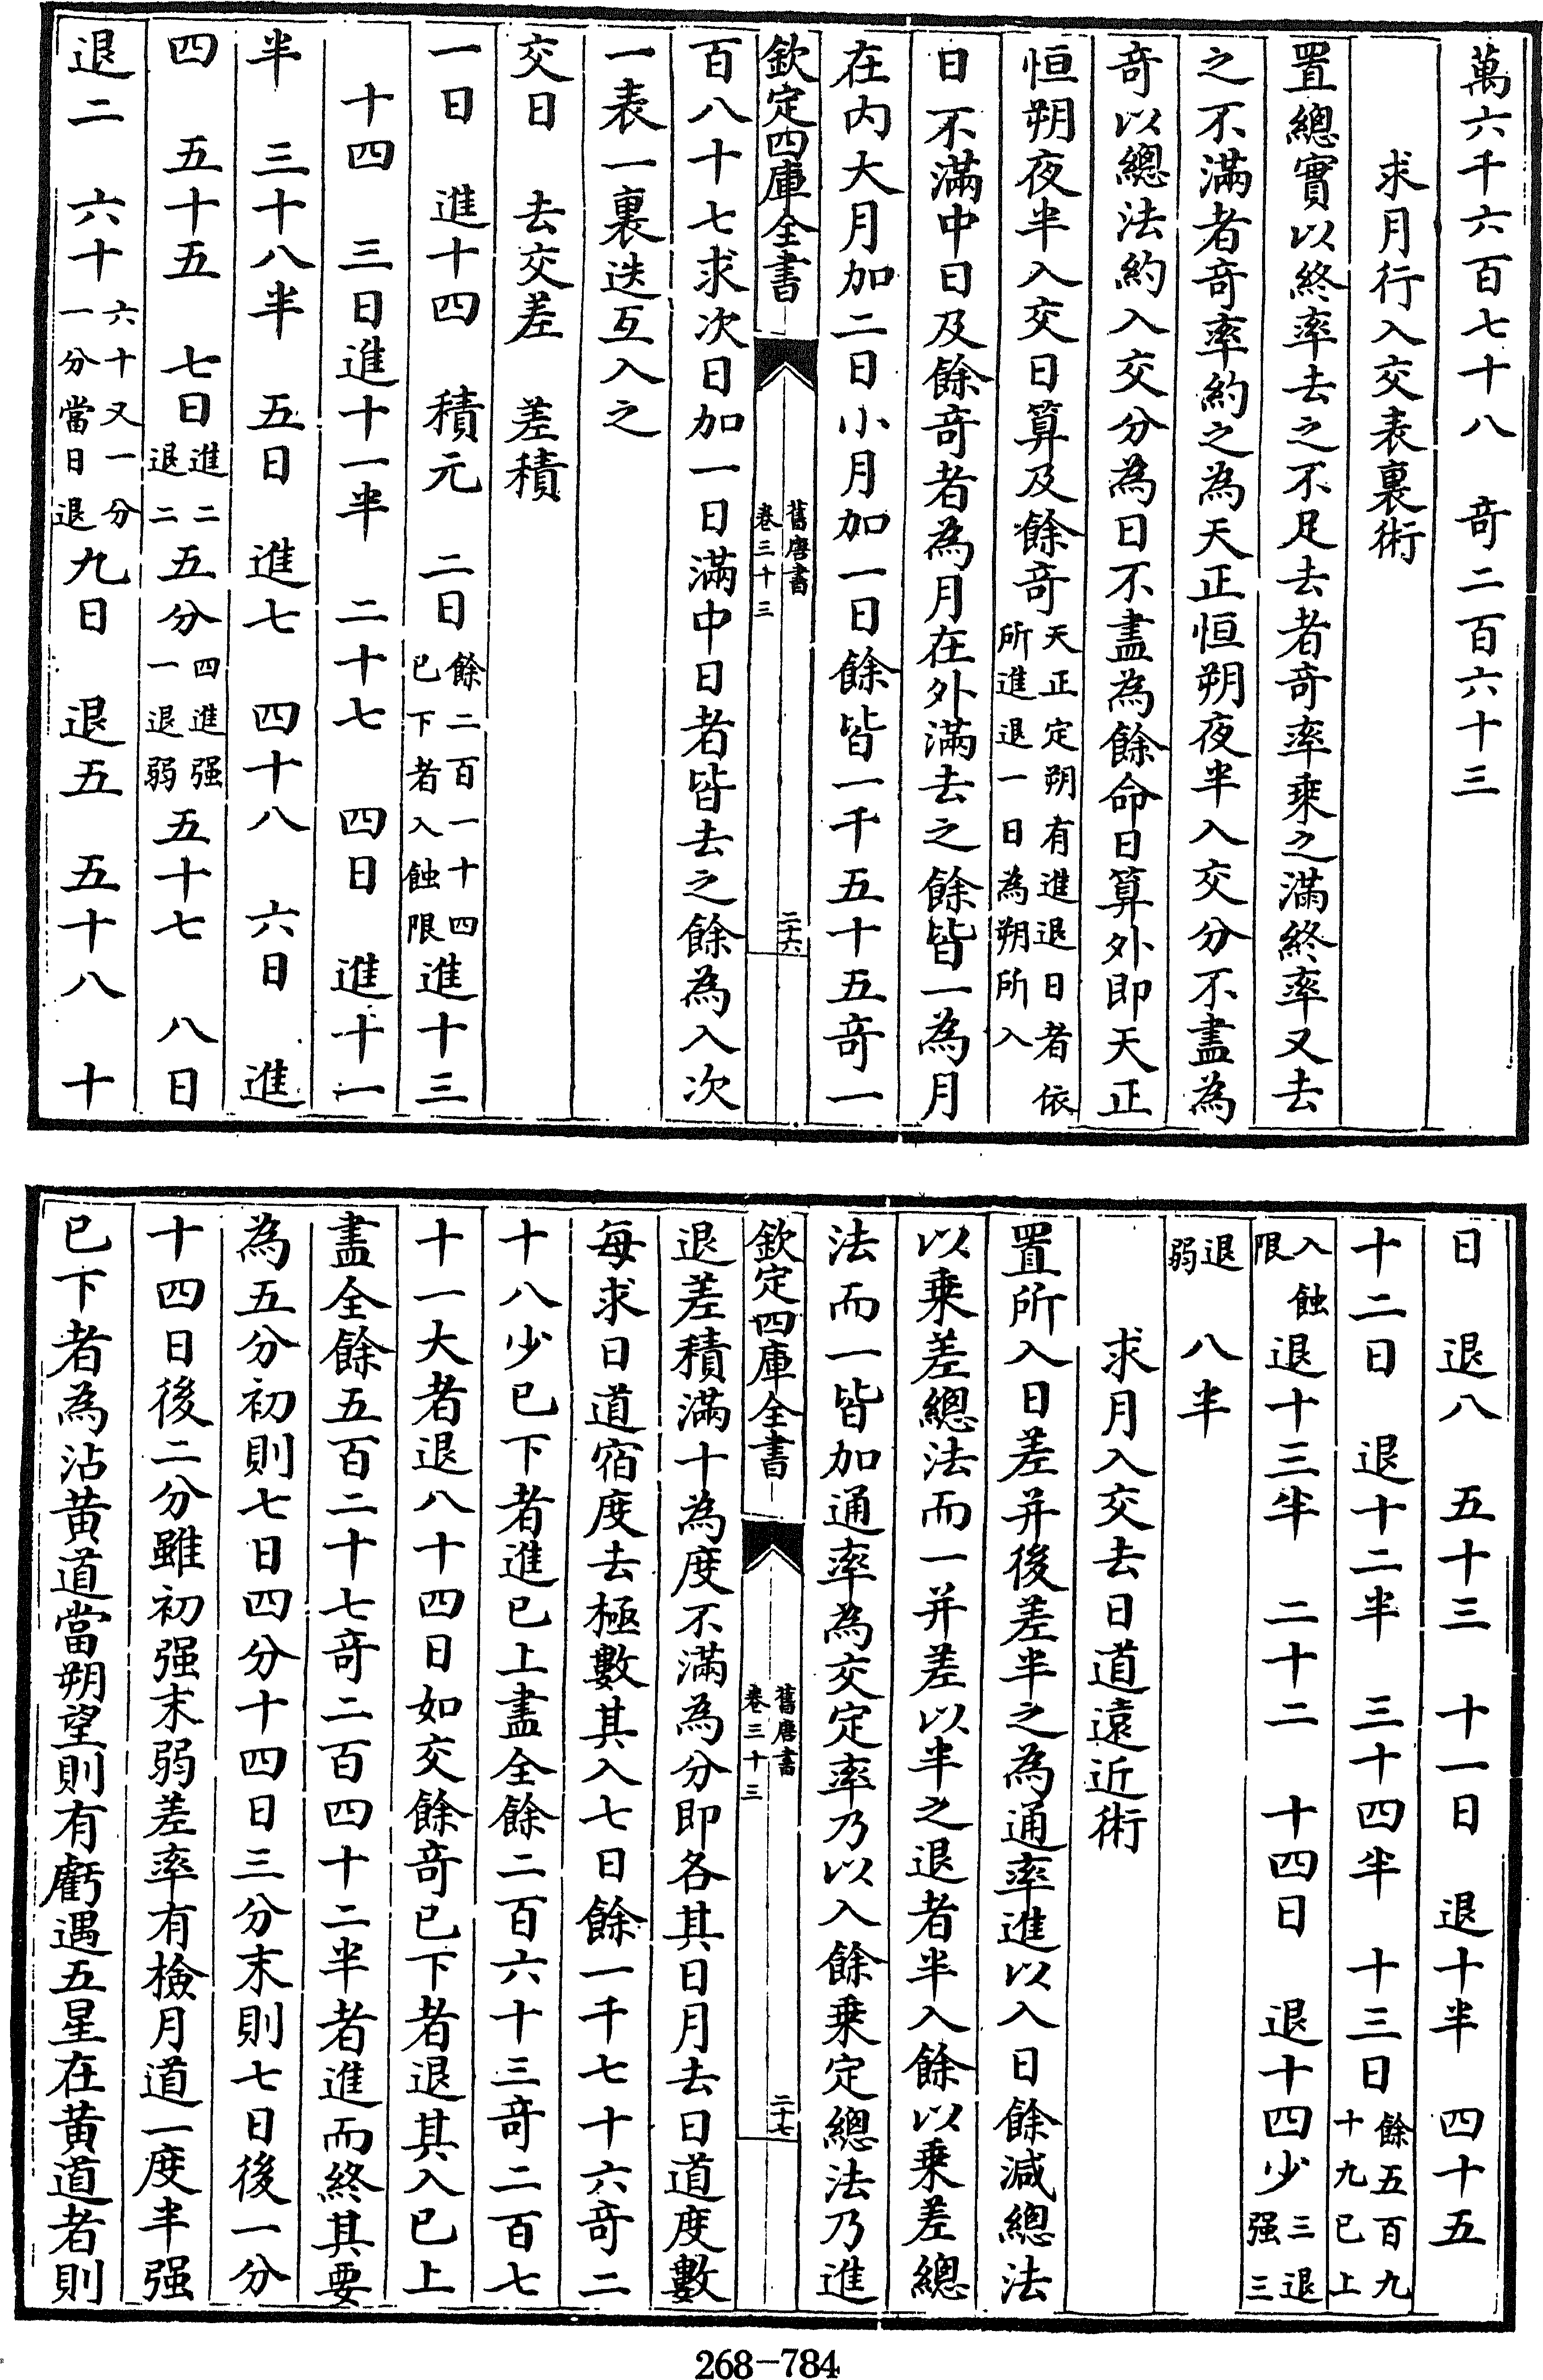 萬六千六百七十八　奇二百六十三
求月行入交表裏術
置總實以終率去之不足去者奇率乗之滿終率又去
之不滿者奇率約之為天正恒朔夜半入交分不盡為
奇以總法約入交分為日不盡為餘命日算外即天正
恒朔夜半入交日算及餘奇天正定朔有進退日者依所進退一日為朔所入
日不滿中日及餘奇者為月在外滿去之餘皆一為月
在内大月加二日小月加一日餘皆一千五十五奇一
欽定四庫全書
舊唐書
卷三十三
二十六
百八十七求次日加一日滿中日者皆去之餘為入次
一表一裏迭互入之
交日　去交差　差積
一日　進十四　積元　二日餘二百一十四已下者入蝕限進十三
十四　三日進十一半　二十七　四日　進十一
半　三十八半　五日　進七　四十八　六日　進
四　五十五　七日進二退二五分四進强一退弱五十七　八日
退二　六十六十又一分一分當日退九日　退五　五十八　十
日　退八　五十三　十一日　退十半　四十五
十二日　退十二半　三十四半　十三日餘五百九十九已上
入蝕限退十三半　二十二　十四日　退十四少三退强三
退弱　八半
求月入交去日道遠近術
置所入日差并後差半之為通率進以入日餘減總法
以乗差總法而一并差以半之退者半入餘以乗差總
法而一皆加通率為交定率乃以入餘乗定總法乃進
欽定四庫全書
舊唐書
卷三十三
二十七
退差積滿十為度不滿為分即各其日月去日道度數
每求日道宿度去極數其入七日餘一千七十六奇二
十八少已下者進已上盡全餘二百六十三奇二百七
十一大者退八十四日如交餘奇已下者退其入已上
盡全餘五百二十七奇二百四十二半者進而終其要
為五分初則七日四分十四日三分末則七日後一分
十四日後二分雖初强末弱差率有檢月道一度半强
已下者為沾黄道當朔望則有虧遇五星在黄道者則
268-784